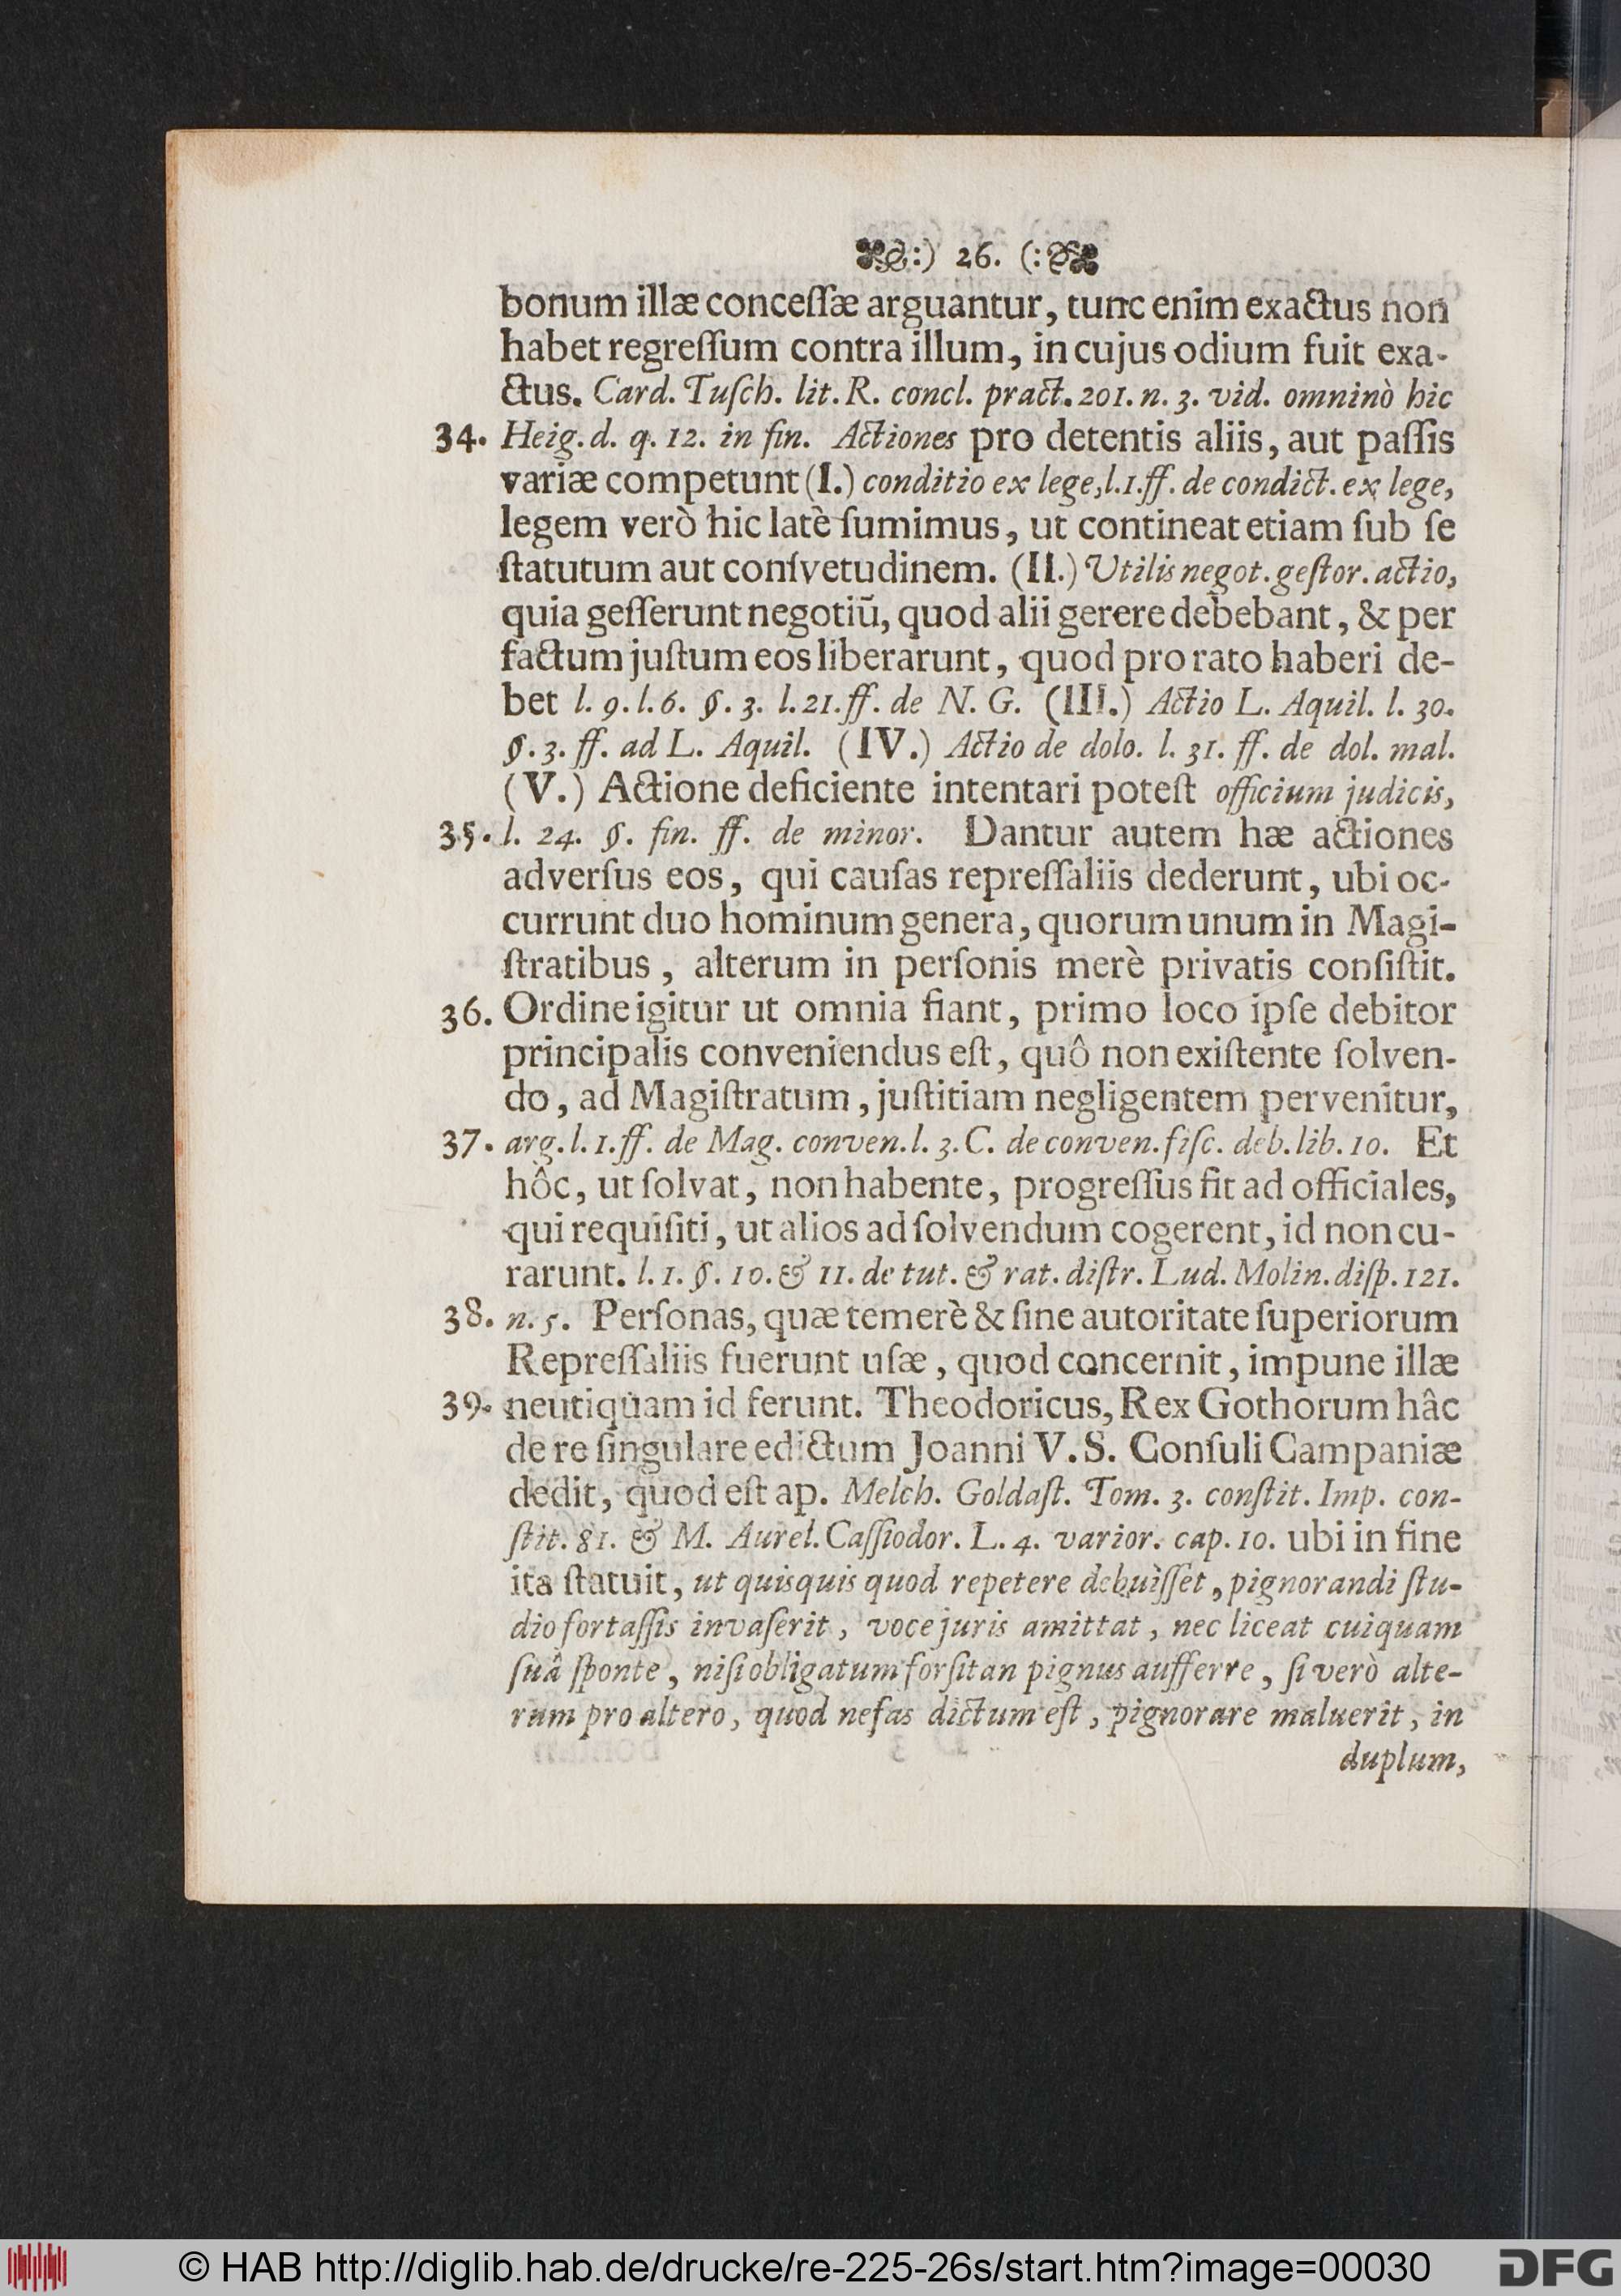 :) 26. (:
bonum illæ conceſſæ arguantur, tunc enim exactus non
habet regreſſum contra illum, in cujus odium fuit exa-
ctus. Card. Tuſch. lit. R. concl. pract. 201. n. 3. vid. omninò hic
34. Heig. d. q. 12. in fin. Actiones pro detentis aliis, aut paſſis
variæ competunt (I.) conditio ex lege, l. 1. ff. de condict. ex lege,
legem verò hic latè ſumimus, ut contineat etiam ſub ſe
ſtatutum aut conſvetudinem. (II.) Utilis negot. geſtor. actio,
quia geſſerunt negotiũ, quod alii gerere debebant, & per
factum juſtum eos liberarunt, quod pro rato haberi de-
bet l. 9. l. 6. §. 3. l. 21. ff. de N. G. (III.) Actio L. Aquil. l. 30.
§. 3. ff. ad L. Aquil. (IV.) Actio de dolo. l. 31. ff. de dol. mal.
(V.) Actione deficiente intentari poteſt officium judicis,
35. l. 24. §. fin. ff. de minor. Dantur autem hæ actiones
adverſus eos, qui cauſas repreſſaliis dederunt, ubi oc-
currunt duo hominum genera, quorum unum in Magi-
ſtratibus, alterum in perſonis merè privatis conſiſtit.
36. Ordine igitur ut omnia fiant, primo loco ipſe debitor
principalis conveniendus eſt, quô non exiſtente ſolven-
do, ad Magiſtratum, juſtitiam negligentem pervenitur,
37. arg. l. 1. ff. de Mag. conven. l. 3. C. de conven. fiſc. deb. lib. 10. Et
hôc, ut ſolvat, non habente, progreſſus fit ad officiales,
qui requiſiti, ut alios ad ſolvendum cogerent, id non cu-
rarunt. l. 1. §. 10. & 11. de tut. & rat. diſtr. Lud. Molin. diſp. 121.
38. n. 5. Perſonas, quæ temerè & ſine autoritate ſuperiorum
Repreſſaliis fuerunt uſæ, quod concernit, impune illæ
39. neutiquam id ferunt. Theodoricus, Rex Gothorum hâc
de re ſingulare edictum Joanni V. S. Conſuli Campaniæ
dedit, quod eſt ap. Melch. Goldaſt. Tom. 3. conſtit. Imp. con-
ſtit. 81. & M. Aurel. Caſſiodor. L. 4. varior. cap. 10. ubi in fine
ita ſtatuit, ut quisquis quod repetere debuiſſet, pignorandi ſtu-
dio fortaſſis invaſerit, voce juris amittat, nec liceat cuiquam
ſuâ ſponte, niſi obligatum forſitan pignus aufferre, ſi verò alte-
rum pro altero, quod nefas dictum eſt, pignorare maluerit, in
duplum,
© HAB http://diglib.hab.de/drucke/re-225-26s/start.htm?image=00030
DFG